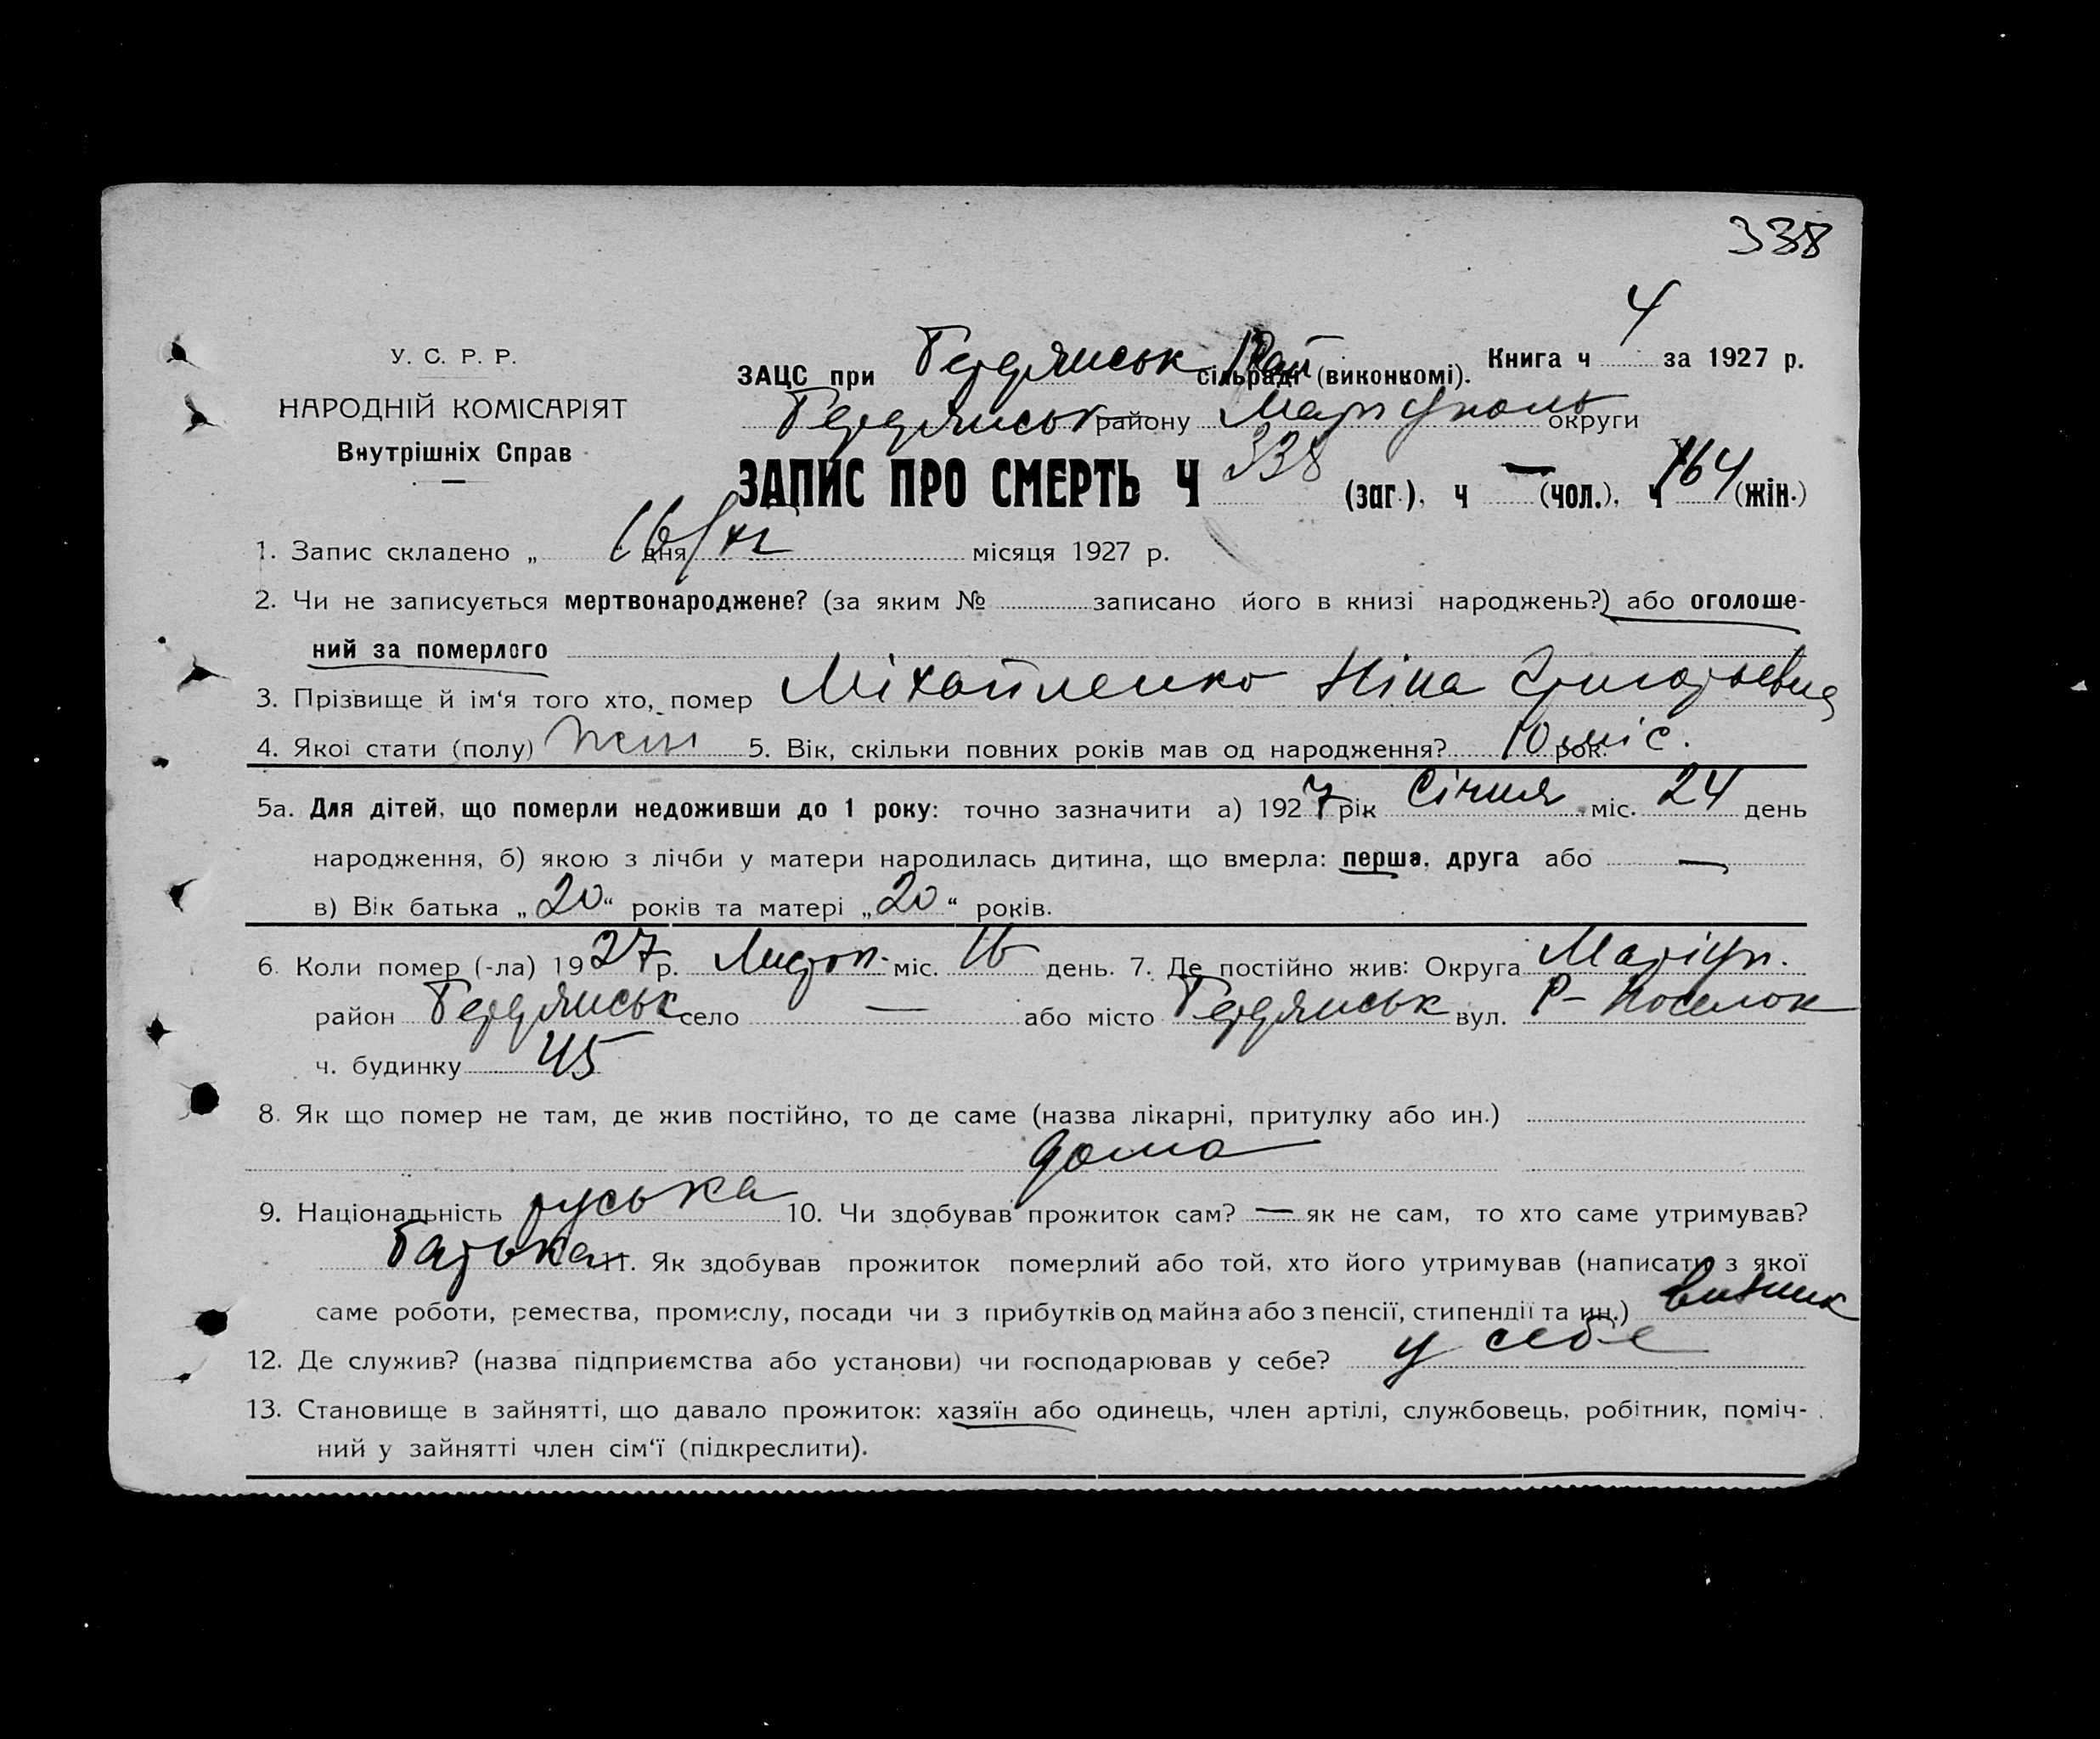 338
У. С. Р. Р.
НАРОДНІЙ КОМІСАРІЯТ
Внутрішніх Справ
ЗАЦС при Бердянськ Рай сільраді (виконкомі). Книга ч 4 за 1927 р.
Бердянськ району Маріуполь округи
ЗАПИС ПРО СМЕРТЬ Ч 338 (заг.), ч — (чол.), ч 164 (жін.)
1. Запис складено „ 16/XI дня місяця 1927 р.
2. Чи не записується мертвонароджене? (за яким № записано його в книзі народжень?) або оголоше-
ний за померлого
3. Прізвище й ім‘я того хто, помер Міхайленко Ніна Григорьевна
4. Якої стати (полу) жін 5. Вік, скільки повних років мав од народження? 10 міс. рок.
5а. Для дітей, що померли недоживши до 1 року: точно зазначити а) 1927 рік Січня міс. 24 день
народження, б) якою з лічби у матери народилась дитина, що вмерла: перша, друга або —
в) Вік батька „20“ років та матері „20“ років.
6. Коли помер (-ла) 1927 р. Листоп. міс. 16 день. 7. Де постійно жив: Округа Маріуп.
район Бердянськ село — або місто Бердянськ вул. Р- Поселок
ч. будинку 45
8. Як що помер не там, де жив постійно, то де саме (назва лікарні, притулку або ин.)
дома
9. Національність руська 10. Чи здобував прожиток сам? — як не сам, то хто саме утримував?
батька 11. Як здобував прожиток померлий або той, хто його утримував (написати з якої
саме роботи, ремества, промислу, посади чи з прибутків од майна або з пенсії, стипендії та ин.)
12. Де служив? (назва підприємства або установи) чи господарював у себе? у себе
13. Становище в зайнятті, що давало прожиток: хазяїн або одинець, член артілі, службовець, робітник, поміч-
ний у зайнятті член сім‘ї (підкреслити).